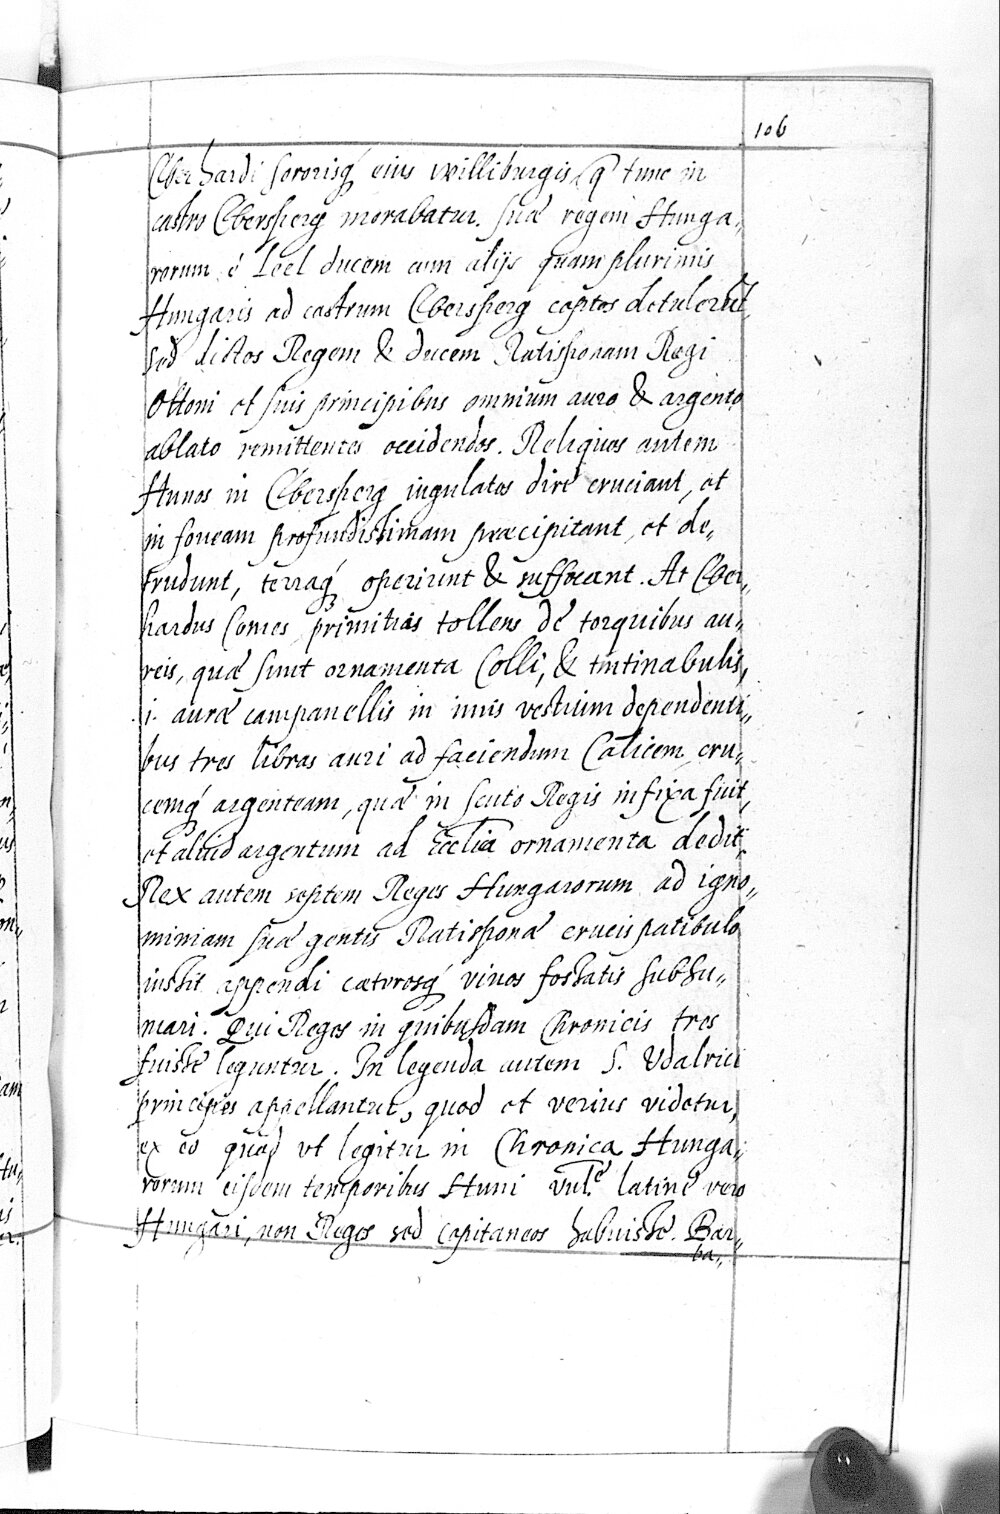 106
Eberhardi sororisq́ eius Williburgis, q̄ tunc in
castro Ebersperg morabatur. Suæ regem Hunga„
rorum é Leel ducem cum alijs quam plurimis
Hungaris ad castrum Ebersperg captos detulerūt,
sed dictos Regem & ducem Ratisponam Regi
Ottoni et suis principibus omnium auro & argento
ablato remittentes occidendos. Reliquos autem
Hunos in Ebersperg iugulatos diré cruciant, et
in foueam profundissimam præcipitant, et de„
trudunt, terraq́ operiunt & suffocant. At Eber„
hardus Comes primitias tollens de torquibus au„
reis, quæ sunt ornamenta Colli, & tintinabulis,
i. auræ campanellis in imis vestium dependenti„
bus tres libras auri ad faciendum Calicem, cru„
cemq́ argenteam, quæ in scuto Regis infixa fuit,
et aliud argentum ad Eccl̄ia ornamenta dedit.
Rex autem septem Reges Hungarorum ad igno„
miniam suæ gentis Ratisponæ crucis patibulo
iussit appendi cæterosq́ viuos fossatis subhu„
mari. Qui Reges in quibusdam Chronicis tres
fuisse leguntur. In legenda autem S. Udalrici
principes appellantur, quod et verius videtur,
ex eo quod vt legitur in Chronica Hunga„
rorum eisdem temporibus Huni vul.é latiné vero
Hungari, non Reges sed capitaneos habuisse. Bar„
ba„